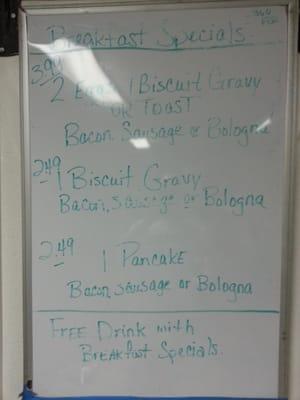 Breakfast Specials
3.99
2 Eggs 1 Biscuit Gravy
OR TOAST
Bacon Sausage or Bologna
2.49
1 Biscuit Gravy
Bacon, Sausage or Bologna
2.49
1 Pancake
Bacon, Sausage or Bologna
FREE Drink with
BREAKfast Specials.